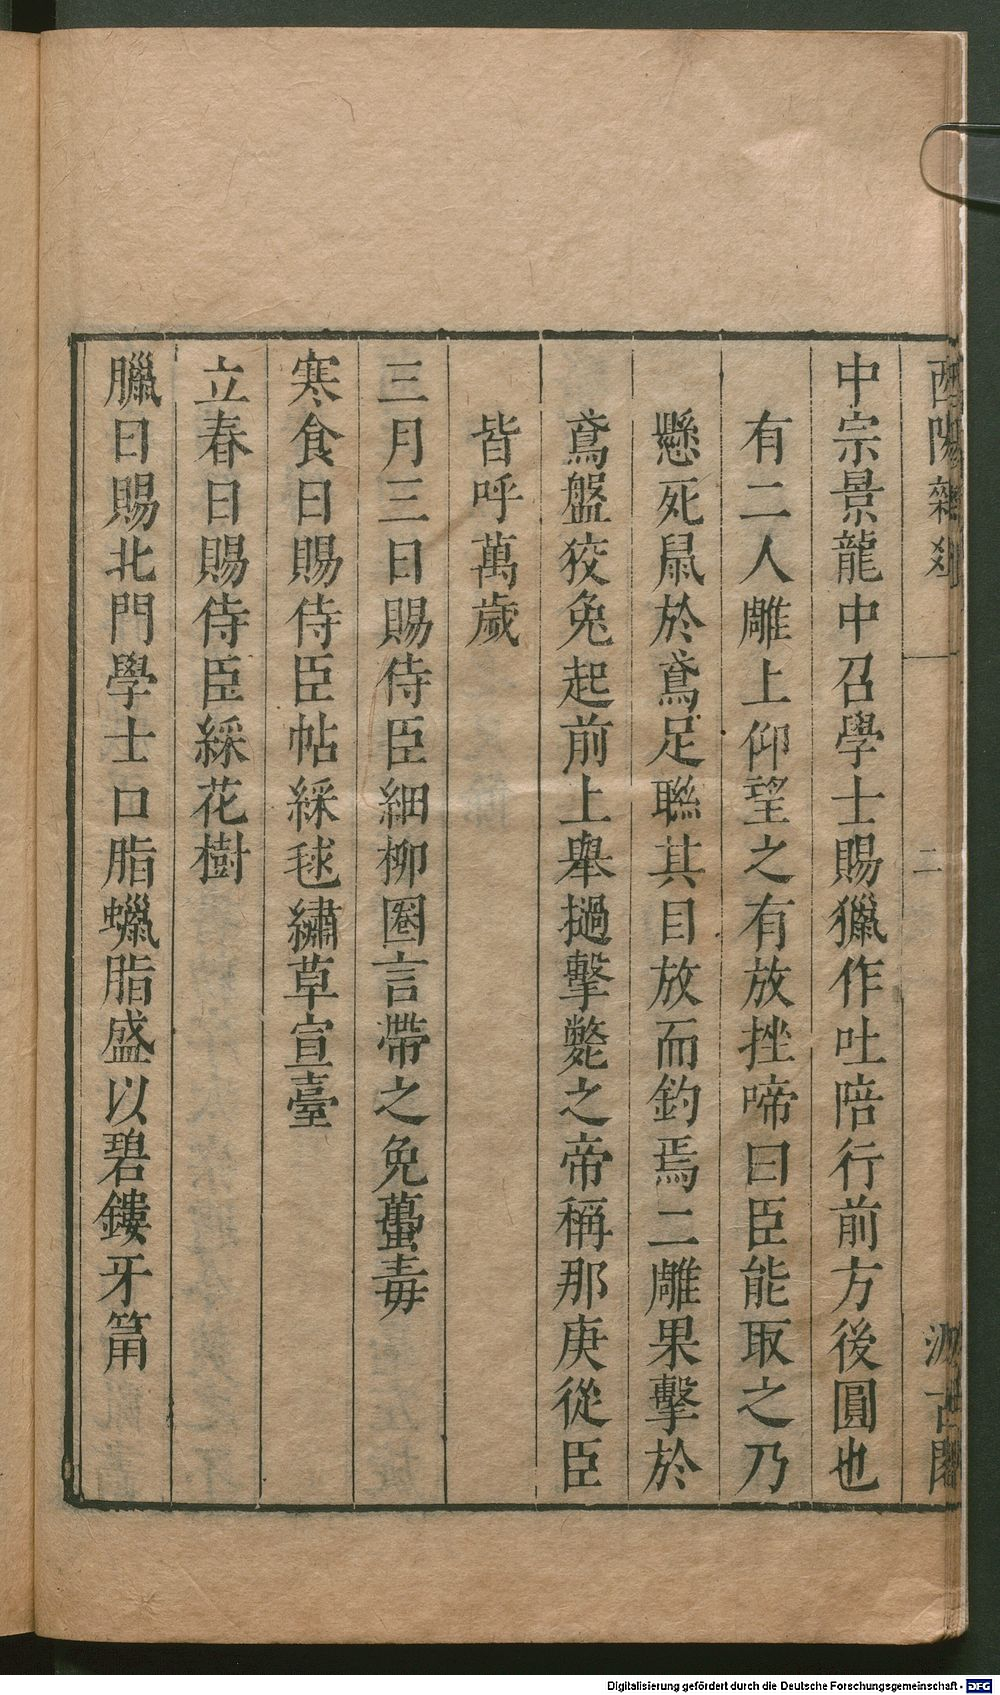 酉陽雜俎
二
汲古閣
中宗景龍中召學士賜獵作吐陪行前方後圓也
有二人雕上仰望之有放挫啼曰臣能取之乃
懸死鼠於鳶足聯其目放而釣焉二雕果擊於
鳶盤狡兔起前上舉撾擊斃之帝稱那庚從臣
皆呼萬歲
三月三日賜侍臣細柳圈言帶之免蠆毒
寒食日賜侍臣帖綵毬繡草宣臺
立春日賜侍臣綵花樹
臘日賜北門學士口脂蠟脂盛以碧鏤牙筩
Digitalisierung gefördert durch die Deutsche Forschungsgemeinschaft - DFG